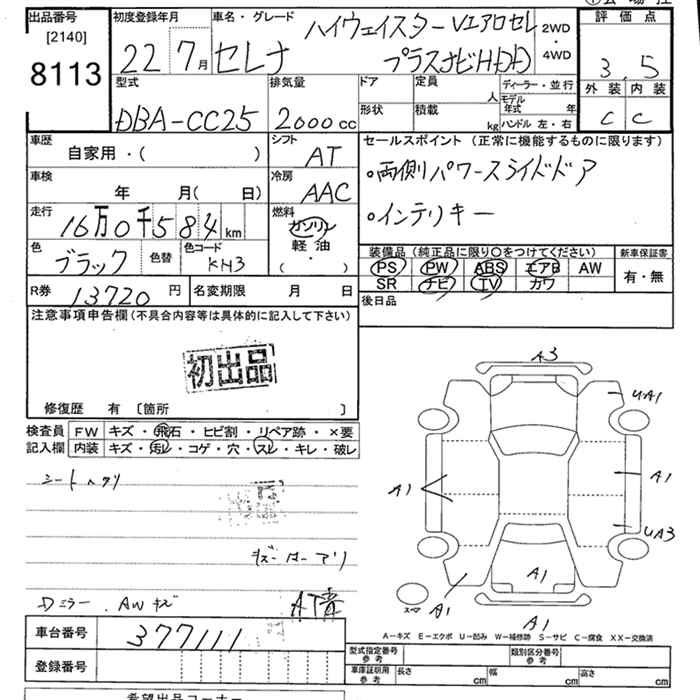 出品番号
[2140]
8113
初度登録年月
22 7月
車名・グレード
セレナ
ハイウェイスターVエアロセレ
プラスナビHDD
2WD
・
4WD
評価点
3.5
外装 内装
C C
型式
DBA-CC25
排気量
2000cc
ドア
定員
人
形状
積載
kg
ディーラー・並行
モデル年式 年
ハンドル 左・右
車歴
自家用・( )
シフト
AT
車検
年 月( 日)
冷房
AAC
走行
16万0千584km
燃料
ガソリン
軽油
( ・ )
色
ブラック
色替
色コード
KH3
セールスポイント (正常に機能するものに限ります)
・両側パワースライドドア
・インテリキー
装備品 (純正品に限り○をつけてください)
PS PW ABS エアB AW
SR ナビ TV カワ
新車保証書
有・無
R券
13720円
名変期限 月 日
後日品
注意事項申告欄(不具合内容等は具体的に記入して下さい)
初出品
修復歴 有 〔箇所 〕
検査員記入欄
FW キズ・飛石・ヒビ割・リペア跡・×要
内装 キズ・汚レ・コゲ・穴・スレ・キレ・破レ
シートヘタリ
Dミラー、AWキズ
車台番号
377111
登録番号
希望出品コーナー
A3
UA1
A1
A1
UA3
A1
A1
A1
スペア
A-キズ E-エクボ U-凹み W-補修跡 S-サビ C-腐食 XX-交換済
型式指定番号 参考
類別区分番号 参考
車庫証明用 参考
長さ cm
幅 cm
高さ cm